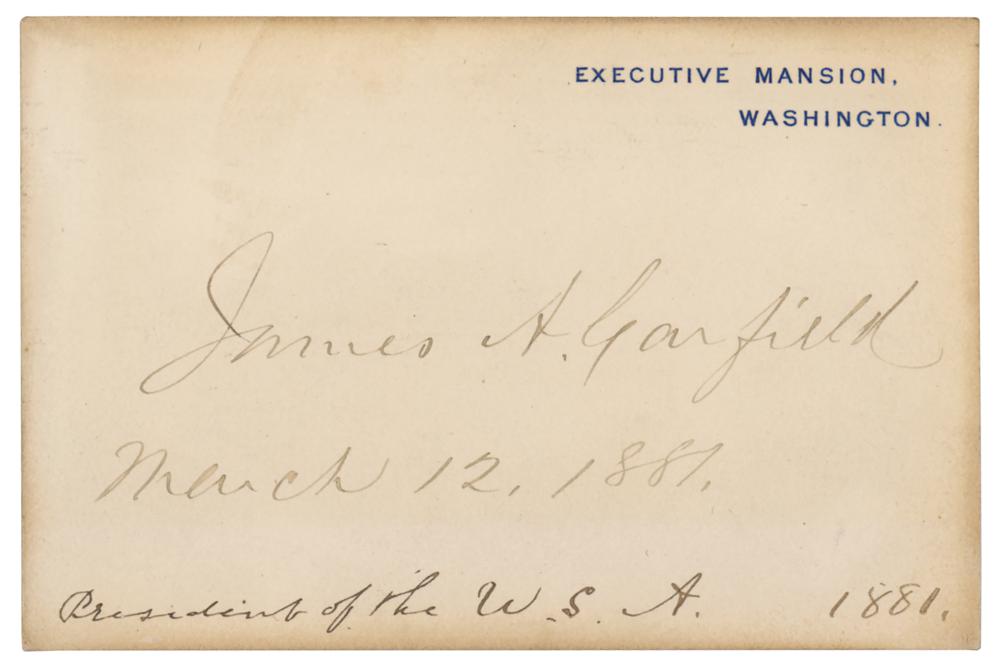 EXECUTIVE MANSION,
WASHINGTON.
James A. Garfield
March 12, 1881.
President of the U.S.A. 1881.